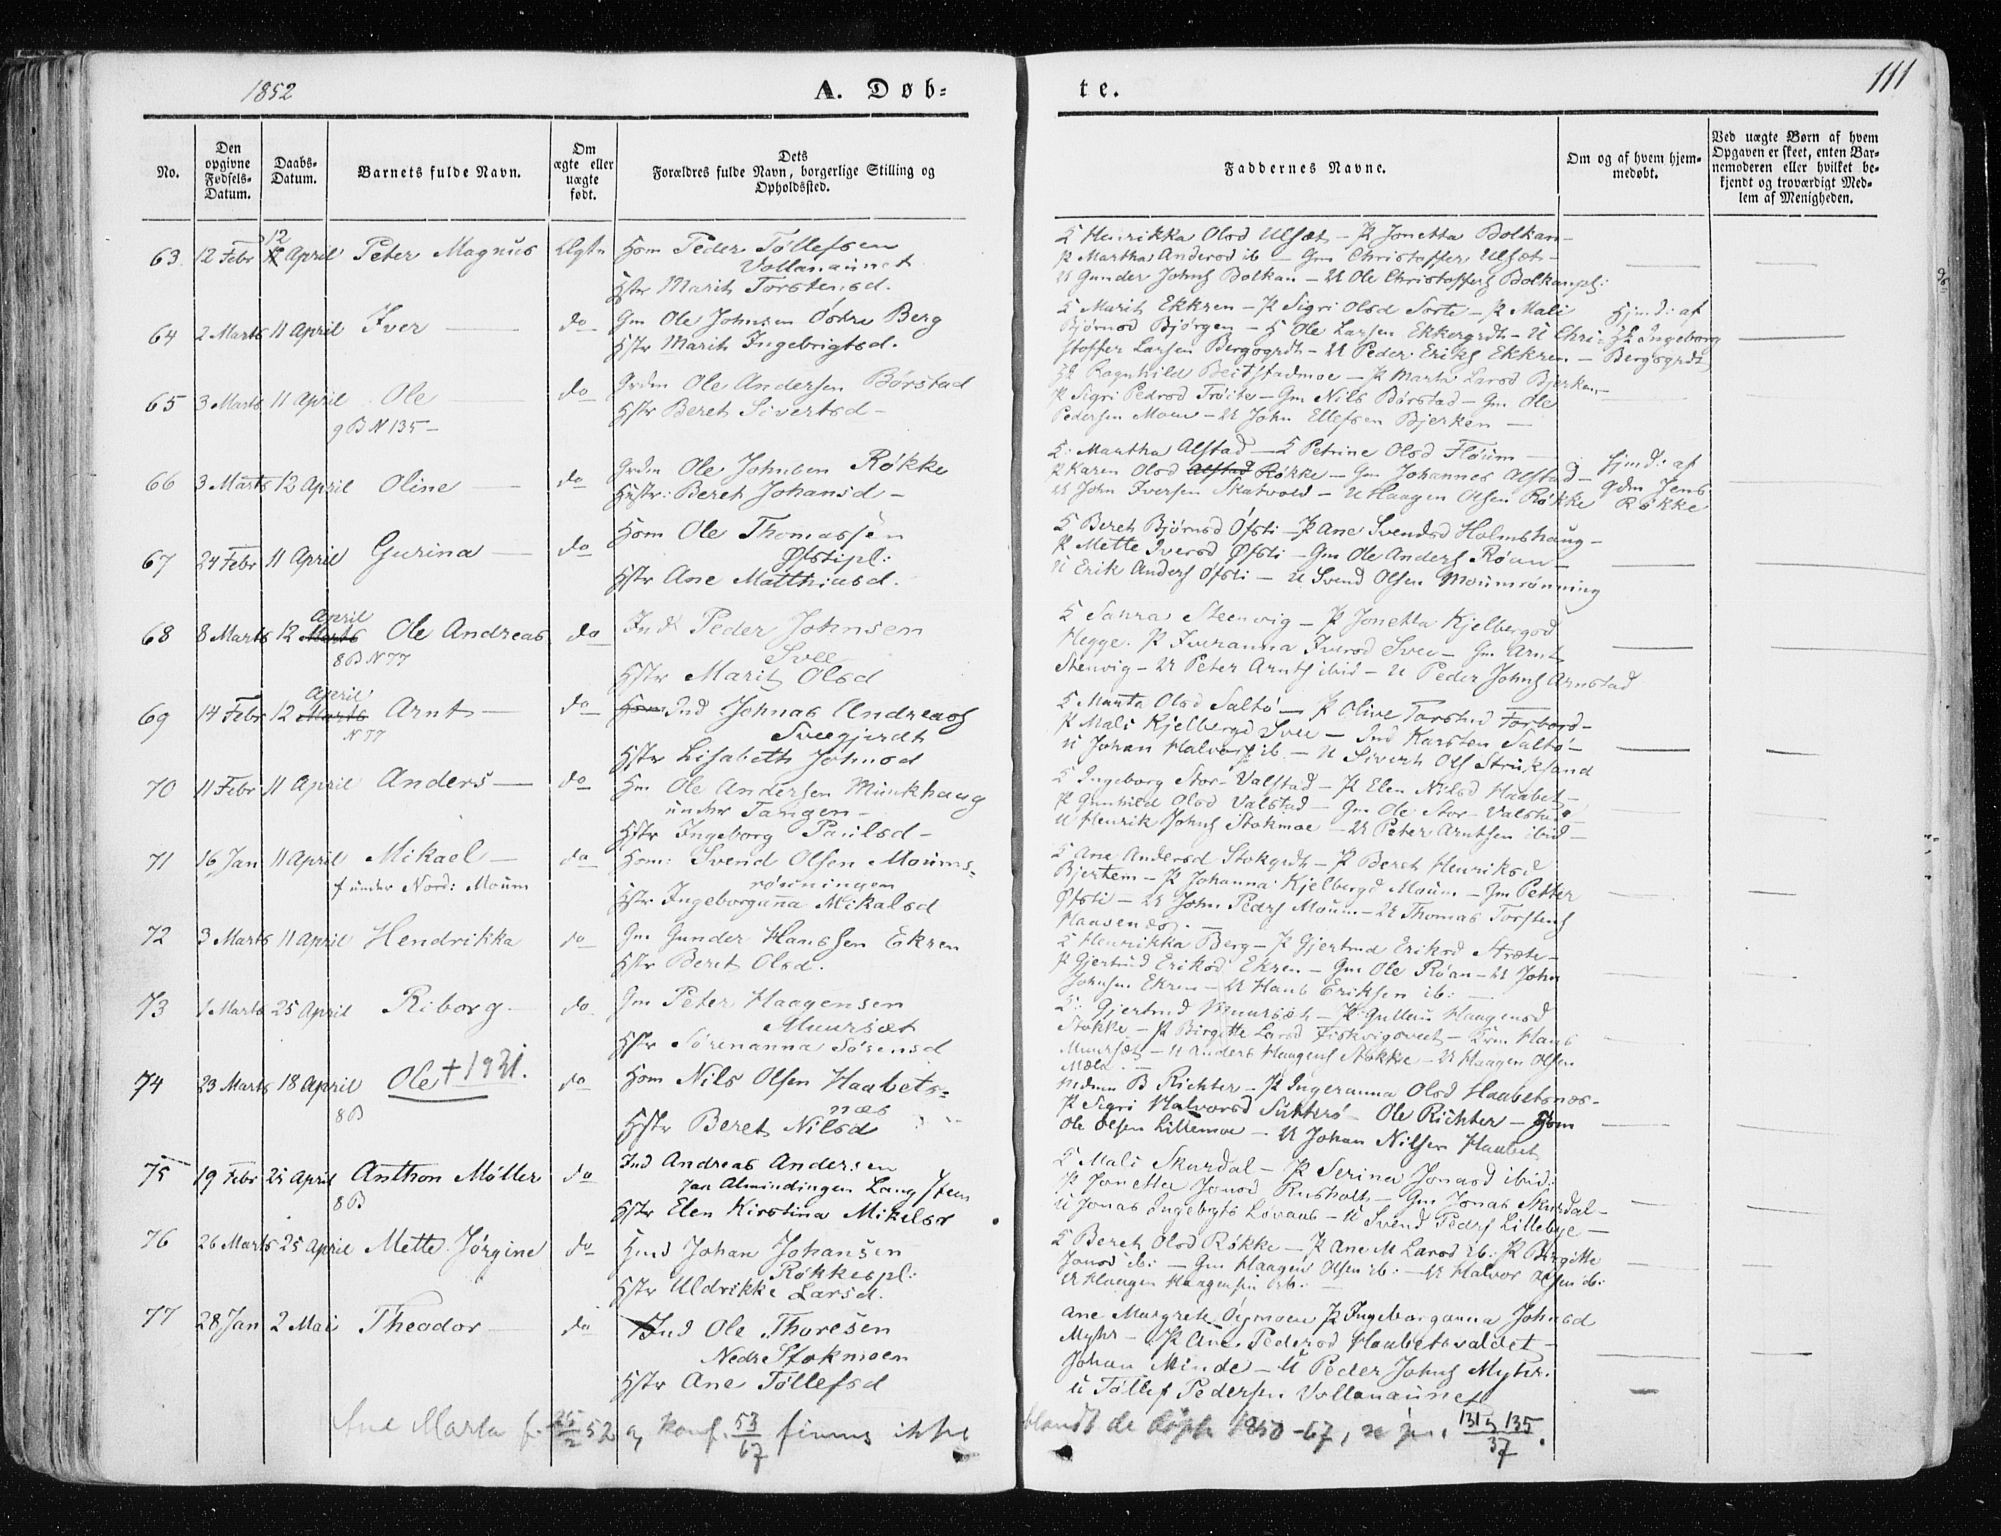 1852
A. Døb-
te.
111
No.
Den opgivne Fødsels-Datum.
Daabs-Datum.
Barnets fulde Navn.
Om ægte eller uægte født.
Dets Forældres fulde Navn, borgerlige Stilling og Opholdssted.
Faddernes Navne.
Om og af hvem hjem-medøbt.
Ved uægte Børn af hvem Opgaven er skeet, enten Bar-nemoderen eller hvilket be-kjendt og troværdigt Med-lem af Menigheden.
63 12 Febr 12 April Peter Magnus Ægte Hom Peder Tøllefsen
Vollanaunet
Hstr Marit Torstensd.
K Henrikka Olsd Ulsæt - P Jonetta Bolkan -
P Martha Andersd ib - Gm Christoffer Ulsæt -
U Gunder Johns Bolkan - U Ole Christoffers Bolkanpl:
64 2 Marts 11 April Iver do Gm Ole Johnsen Østre Berg
Hstr Marit Ingebrigtsd.
K Marit Ekkren - P Sigri Olsd Sorte - P Mali
Bjørnsd Bjørgen - K Ole Larsen Ekkergrdt - U Chri-
stoffer Larsen Bergsgrdt - U Peder Eriks Ekkren -
Hjmd: af
Ingeborg
Bergsgrdt
65 3 Marts 11 April Ole do Grdm Ole Andersen Børstad
9 B N 135 -
Hstr Beret Sivertsd -
Ragnhild Beitstadmoe - P Marta Larsd Bjerken -
P Sigri Pedersd Trøite - Gm Nils Børstad - Gm Ole
Pedersen Moen - U John Ellefsen Bjerken -
66 3 Marts 12 April Oline do Grdm Ole Johnsen Røkke
Hustr: Beret Johansd -
K: Martha Alstad - K Petrine Olsd Floum -
P Karen Olsd Alstad Røkke - Gm Johannes Alstad -
U John Iversen Skatvold - U Haagen Olsen Røkke
Hjmd: af
gdm Jens
Røkke
67 24 Febr 11 April Gurina do Hom Ole Thomassen
Øfstipl:
Hstr Ane Matthiasd.
K Beret Bjørnsd Øfsti - P Ane Svendsd Holmshaug -
P Mette Iversd Øfsti - Gm Ole Anders Røan -
U Erik Anders Øfsti - U Svend Olsen Moumrønning
68 8 Marts 12 April Marts Ole Andreas do Ind Peder Johnsen
8 B N 77
Svee
Hstr Marit Olsd
K Sanna Steenvig - P Jonetta Kjelbergsd
Hegge. P Iveranna Iversd Svee - Gm Arnt
Stenvig - U Peter Arnts ibid - U Peder Johns Arnstad
69 14 Febr 12 April Marts Arnt do Hom Ind Johnas Andreas
N 77
Sveegjerdt
Hstr Lisabeth Johnsd
K Marta Olsd Saltø - P Olive Torstsd Forbord -
P Mali Kjelbergd Svee - Ind Karsten Saltø -
U Johan Halvors ib - U Sivert Ols Struksand
70 11 Febr 11 April Anders do Hm Ole Andersen Munkhaug
under Tangen -
Hstr Ingeborg Paulsd -
K Ingeborg Stor-Valstad - P Elen Nilsd Haabet -
P Gunhild Olsd Valstad - Gm Ole Stor-Valstad
U Henrik Johns Stokmoe - U Peter Arntsen ibid -
71 16 Jan 11 April Mikael do Hom: Svend Olsen Moums-
f under Nord: Moum
rønningen
Hstr Ingeborganna Mikalsd
K Ane Andersd Stokgrdt - P Beret Henriksd
Bjertem - P Johanna Kjelbergd Moum - Gm Petter
Øfsti - U John Peders Moum - U Thomas Torstens
72 3 Marts 11 April Hendrikka do Gm Gunder Hanssen Ekren
Hstr Beret Olsd.
K Henrikka Berg - P Gjertrud Eriksd Stræte -
P Gjertrud Eriksd Ekren - Gm Ole Røan - U John
Johnsen Ekren - U Hans Eriksen ib: -
73 1 Marts 25 April Riborg do Gm Peter Haagensen
Muursæt
Hstr Sørenanna Sørensd
K: Gjertrud Muursæt - P Gullau Haagensd
Stokke - P Birgitte Larsd Fiskvigsveet - Hans
Muursæt - U Anders Haagens Stokke - U Haagen Olsen
Mæla. -
74 23 Marts 18 April Ole + 1931. do Hom Nils Olsen Haabets-
8 B
næs
Hstr Beret Nilsd
Madam B Richter - P Ingeranna Olsd Haabetsnæs -
P Sigri Halvorsd Sutterø - Ole Richter - Hom
Ole Olsen Lillemoe - U Johan Nilsen Haabet
75 19 Febr 25 April Anthon Møller do Ind Andreas Andersen
8 B
Jan Almindingen Langsteen
Hstr Elen Kirstina Mikelsd
K Mali Skurdal - P Serina Jonasd ibid:
P Jonetta Jonsd Rusholt - Gm Jonas Skurdal -
U Jonas Ingebrgts Løvaas - U Svend Peders Lillebye -
76 26 Marts 25 April Mette Jørgine do Hmd Johan Johansen
Røkkespl:
Hstr Uldrikke Larsd.
K Beret Olsd Røkke - P Ane M Larsd ib: P Birgitte
Jonsd ib: - Gm Haagen Olsen ib: - U Halvor Olsen ib:
U Haagen Haagensen ib: -
77 28 Jan 2 Mai Theodor do Ind Ole Thoresen
Nedr Stokmoen
Hstr Ane Tøllefsd
Ane Margrete Øymoen P Ingeborganna Johnsd
Myhr - P Ane Pedersd Haabetsvaldet -
Johan Minde - U Peder Johns Myhr.
U Tøllef Pedersen Vollanaunet
Ane Marta f. 26/2 52 og konf. 53/67 finns ikke
blandt de døpte 1850-67, se jn. 131 og 135/37.